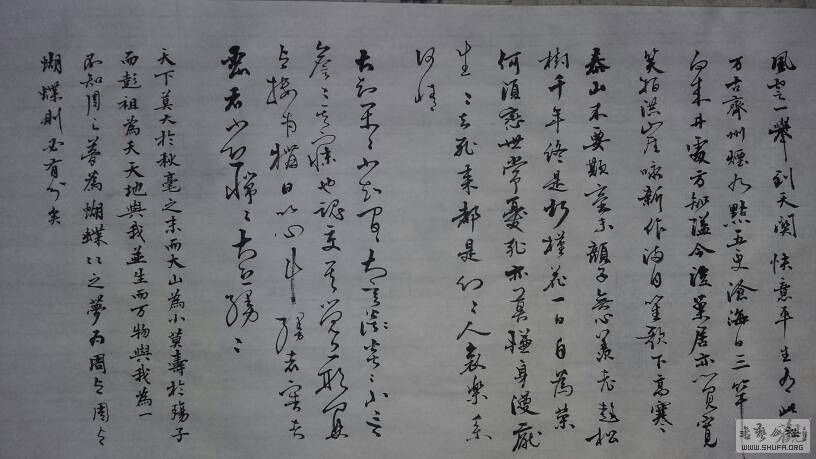 風雲一舉到天関快意平生有此觀
万古齊州煙九點五更滄海日三竿
向來井處方知隘今後巢居亦覺寬
笑拍洪崖咏新作滿目笙歌下高寒
泰山不要欺毫末顏子無心羨老彭松
樹千年終是朽槿花一日自為榮
何須戀世常憂死亦莫嫌身漫厭
生々去死來都是幻々人哀樂系
何情
大知閑々小知間々大言淡々小言
詹々其寐也魂交其覺也形開
與接為構日以心鬥縵者窖者
密者小恐惴々大恐縵々
天下莫大於秋毫之末而大山為小莫壽於殤子
而彭祖為夭天地與我並生而万物與我為一
不知周之夢為蝴蝶々々之夢為周與周與
蝴蝶則必有分矣
WWW.SHUFA.ORG